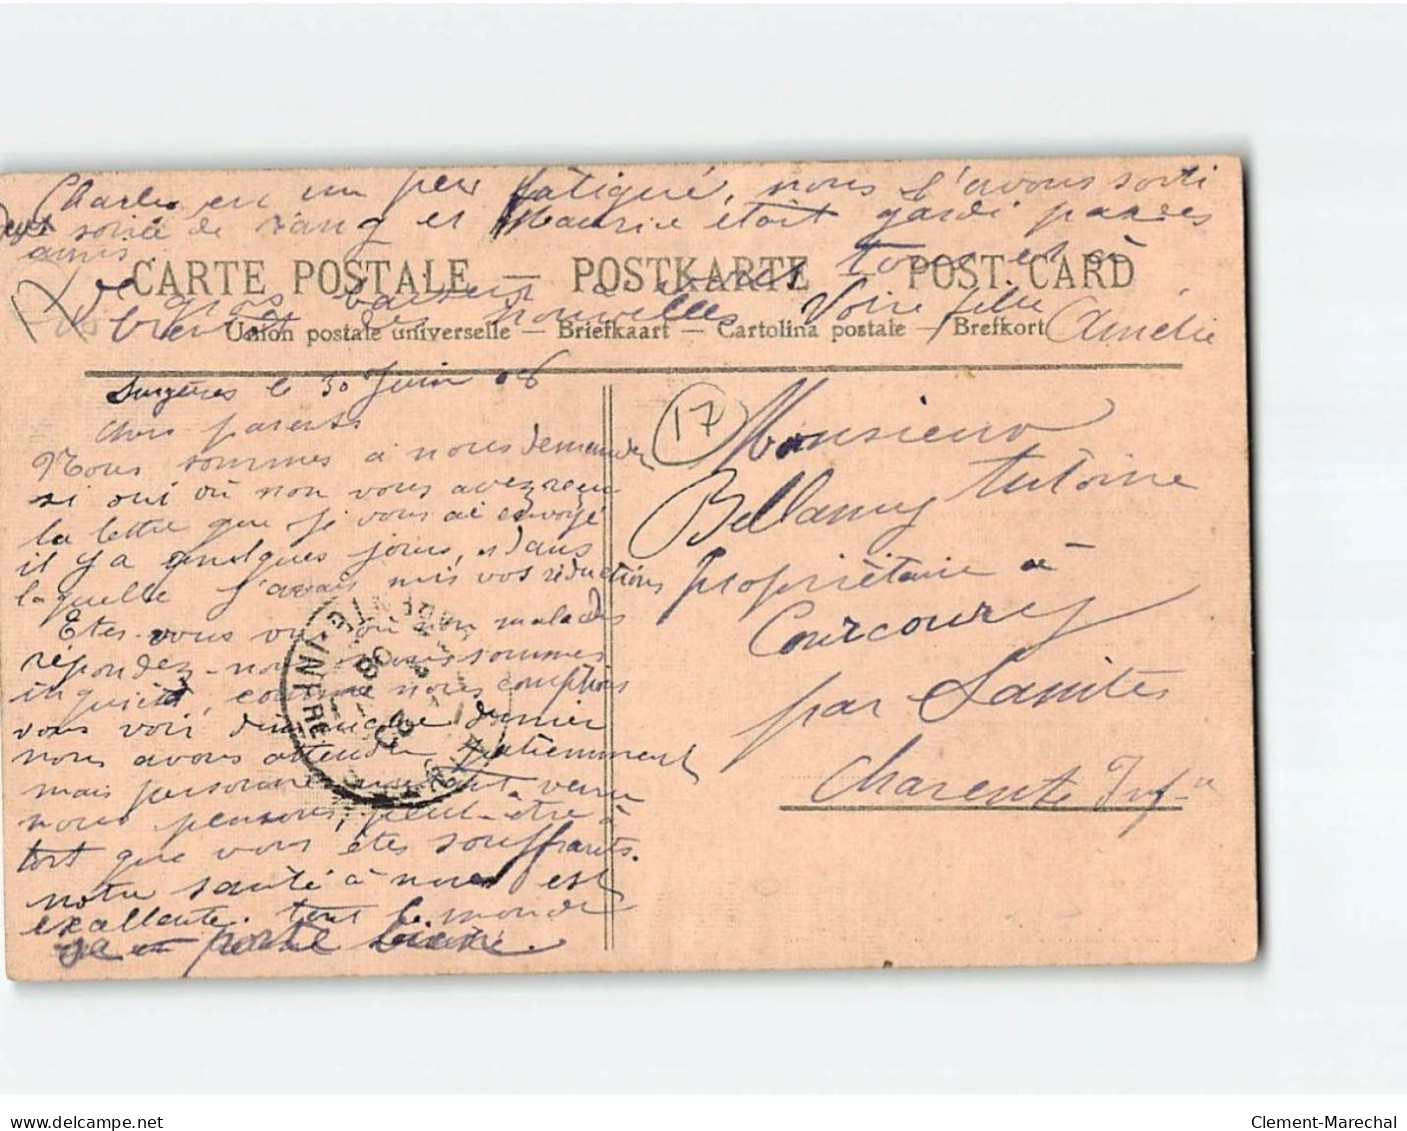 Charles est un peu fatigué, nous l'avons sorti
soirée de rang et Maurice était gardé par ses
amis
CARTE POSTALE — POSTKARTE — POST CARD
de gros baisers à vous tous et à
bientôt des nouvelles Votre fille
Amélie
Union postale universelle — Briefkaart — Cartolina postale — Brefkort
Surgères le 30 Juin 06
Chers parents
Nous sommes à nous demander
si oui où non vous avez reçu
la lettre que je vous ai envoyé
il y a quelques jours, dans
laquelle j'avais mis vos réductions
Êtes-vous oui où non malades
répondez-nous nous sommes
inquiets, comme nous comptions
vous voir dimanche dernier
nous avons attendu patiemment
mais personne venu
nous pensons, peut-être à
tort que vous êtes souffrants.
notre santé à nous est
exallente. tout le monde
se porte bien.
17
Monsieur
Antoine
Bellamy
propriétaire à
Courcoury
par Saintes
Charente Infre
17
delcampe.net
Clement-Marechal